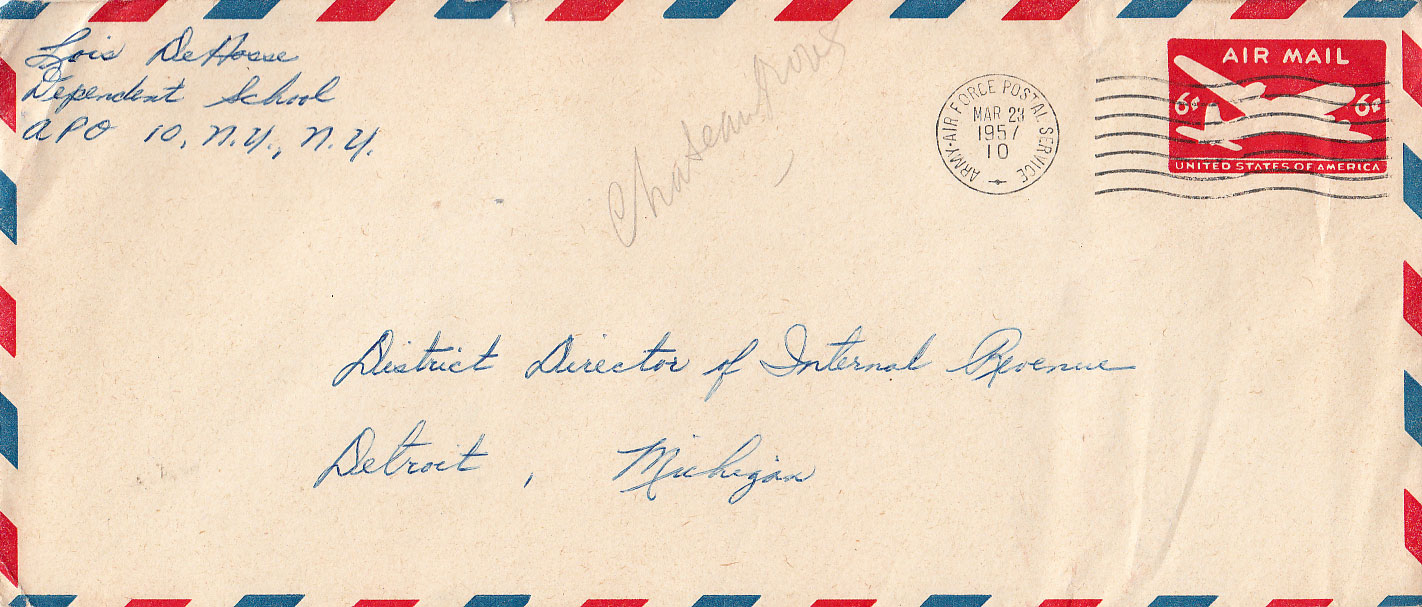 Lois DeHosse
Dependent School
APO 10, N.Y., N.Y.
Chateauroux
ARMY-AIR FORCE POSTAL SERVICE
MAR 23
1957
10
AIR MAIL
6¢ 6¢
UNITED STATES OF AMERICA
District Director of Internal Revenue
Detroit, Michigan